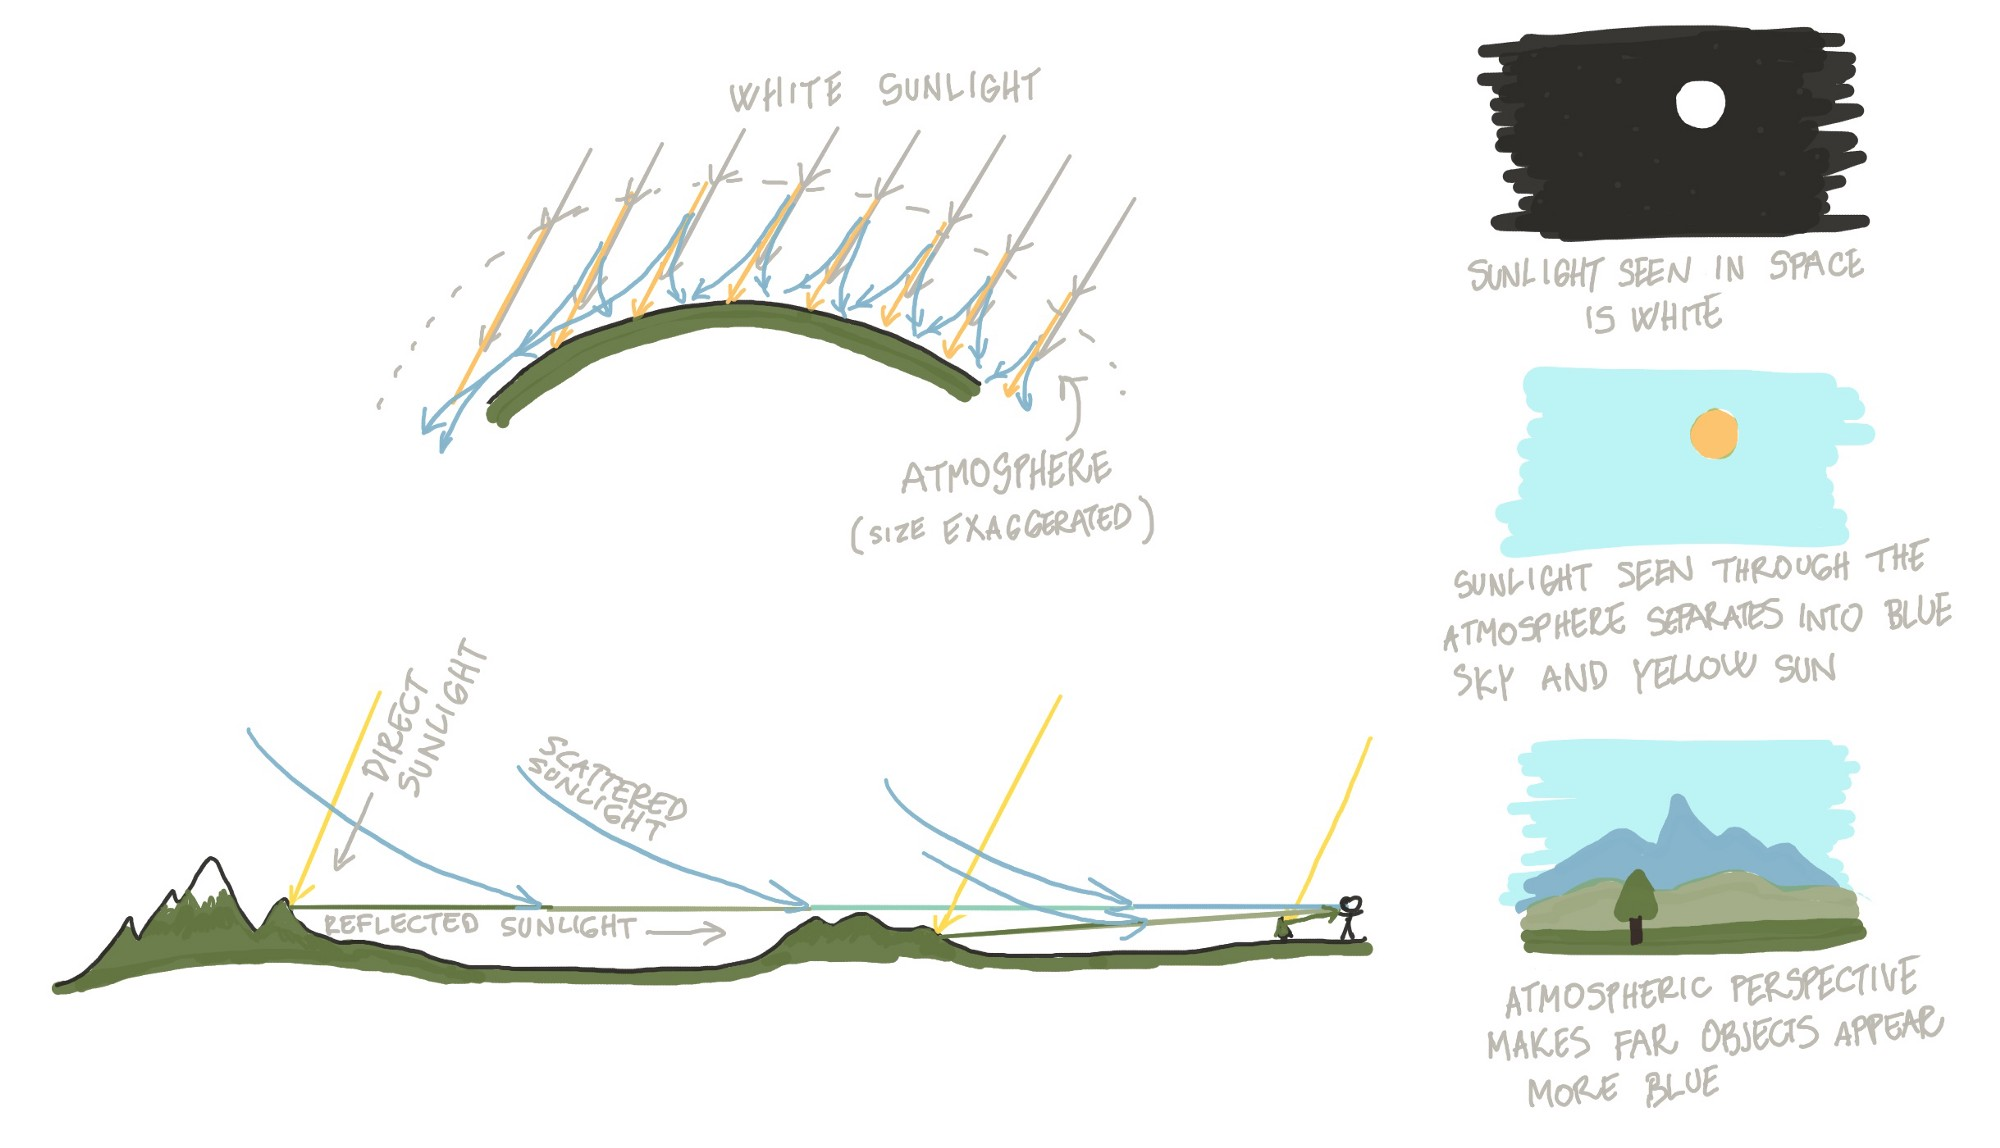 WHITE SUNLIGHT
ATMOSPHERE
(SIZE EXAGGERATED)
DIRECT
SUNLIGHT
SCATTERED
SUNLIGHT
REFLECTED SUNLIGHT
SUNLIGHT SEEN IN SPACE
IS WHITE
SUNLIGHT SEEN THROUGH THE
ATMOSPHERE SEPARATES INTO BLUE
SKY AND YELLOW SUN
ATMOSPHERIC PERSPECTIVE
MAKES FAR OBJECTS APPEAR
MORE BLUE